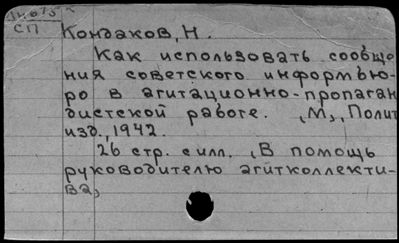 СП
Кондаков, Н.
Как использовать сообще
ния советского информбю-
ро в агитационно-пропаган
дистской работе. "М", Полит
изд., 1942.
26 стр. с илл. "В помощь
руководителю агитколлекти-
ва"